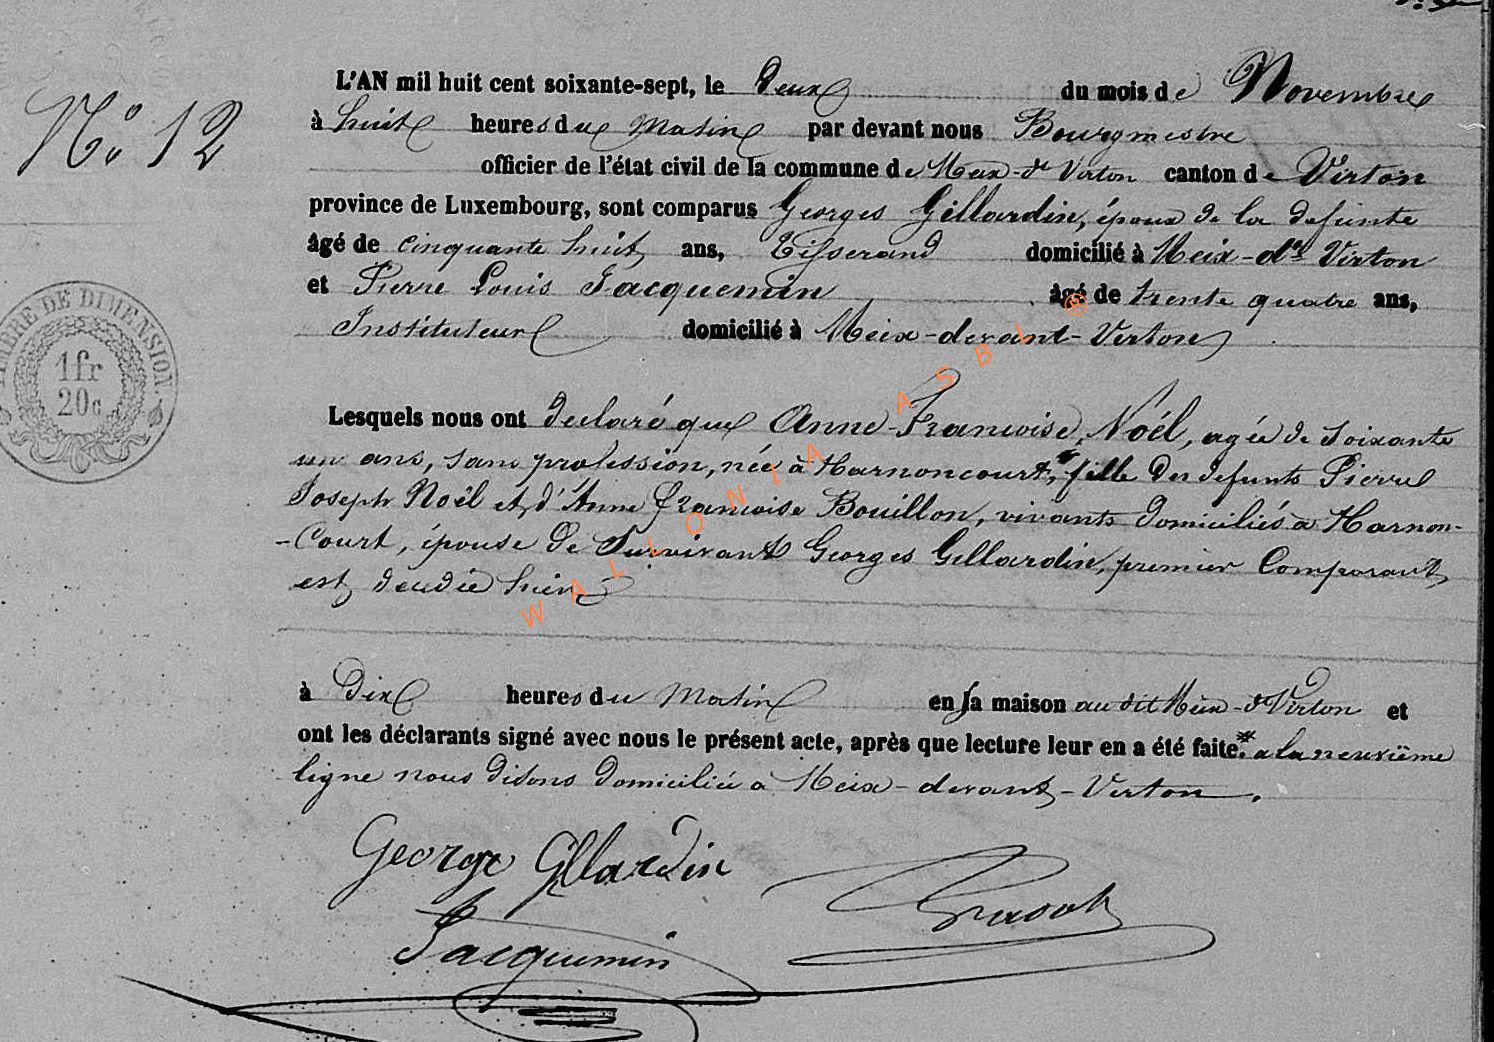 N° 12
L'AN mil huit cent soixante-sept, le deux du mois de Novembre
à huit heures du Matin par devant nous Bourgmestre
officier de l'état civil de la commune de Meix-dt Virton canton de Virton
province de Luxembourg, sont comparus Georges Gillardin, époux de la defunte
âgé de cinquante huit ans, Tisserand domicilié à Meix-dt Virton
et Pierre Louis Jacquemin âgé de trente quatre ans,
Instituteur domicilié à Meix-devant-Virton
TIMBRE DE DIMENSION
1fr
20c
Lesquels nous ont declaré que Anne-Francoise, Noél, agée de soixante
un ans, sans profession, née à Harnoncourt,* fille des defunts Pierre
Joseph Noël et d'Anne Françoise Bouillon, vivants domiciliés à Harnon-
-Court, épouse de Survivant Georges Gillardin, premier Comparant
est decedée hier
à Dix heures du Matin en sa maison au dit Meix-dt Virton et
ont les déclarants signé avec nous le présent acte, après que lecture leur en a été faite.* a la neuvième
ligne nous disons domiciliée a Meix-devant-Virton.
George Gillardin
Jacquemin
WALLONIA ASBL ®